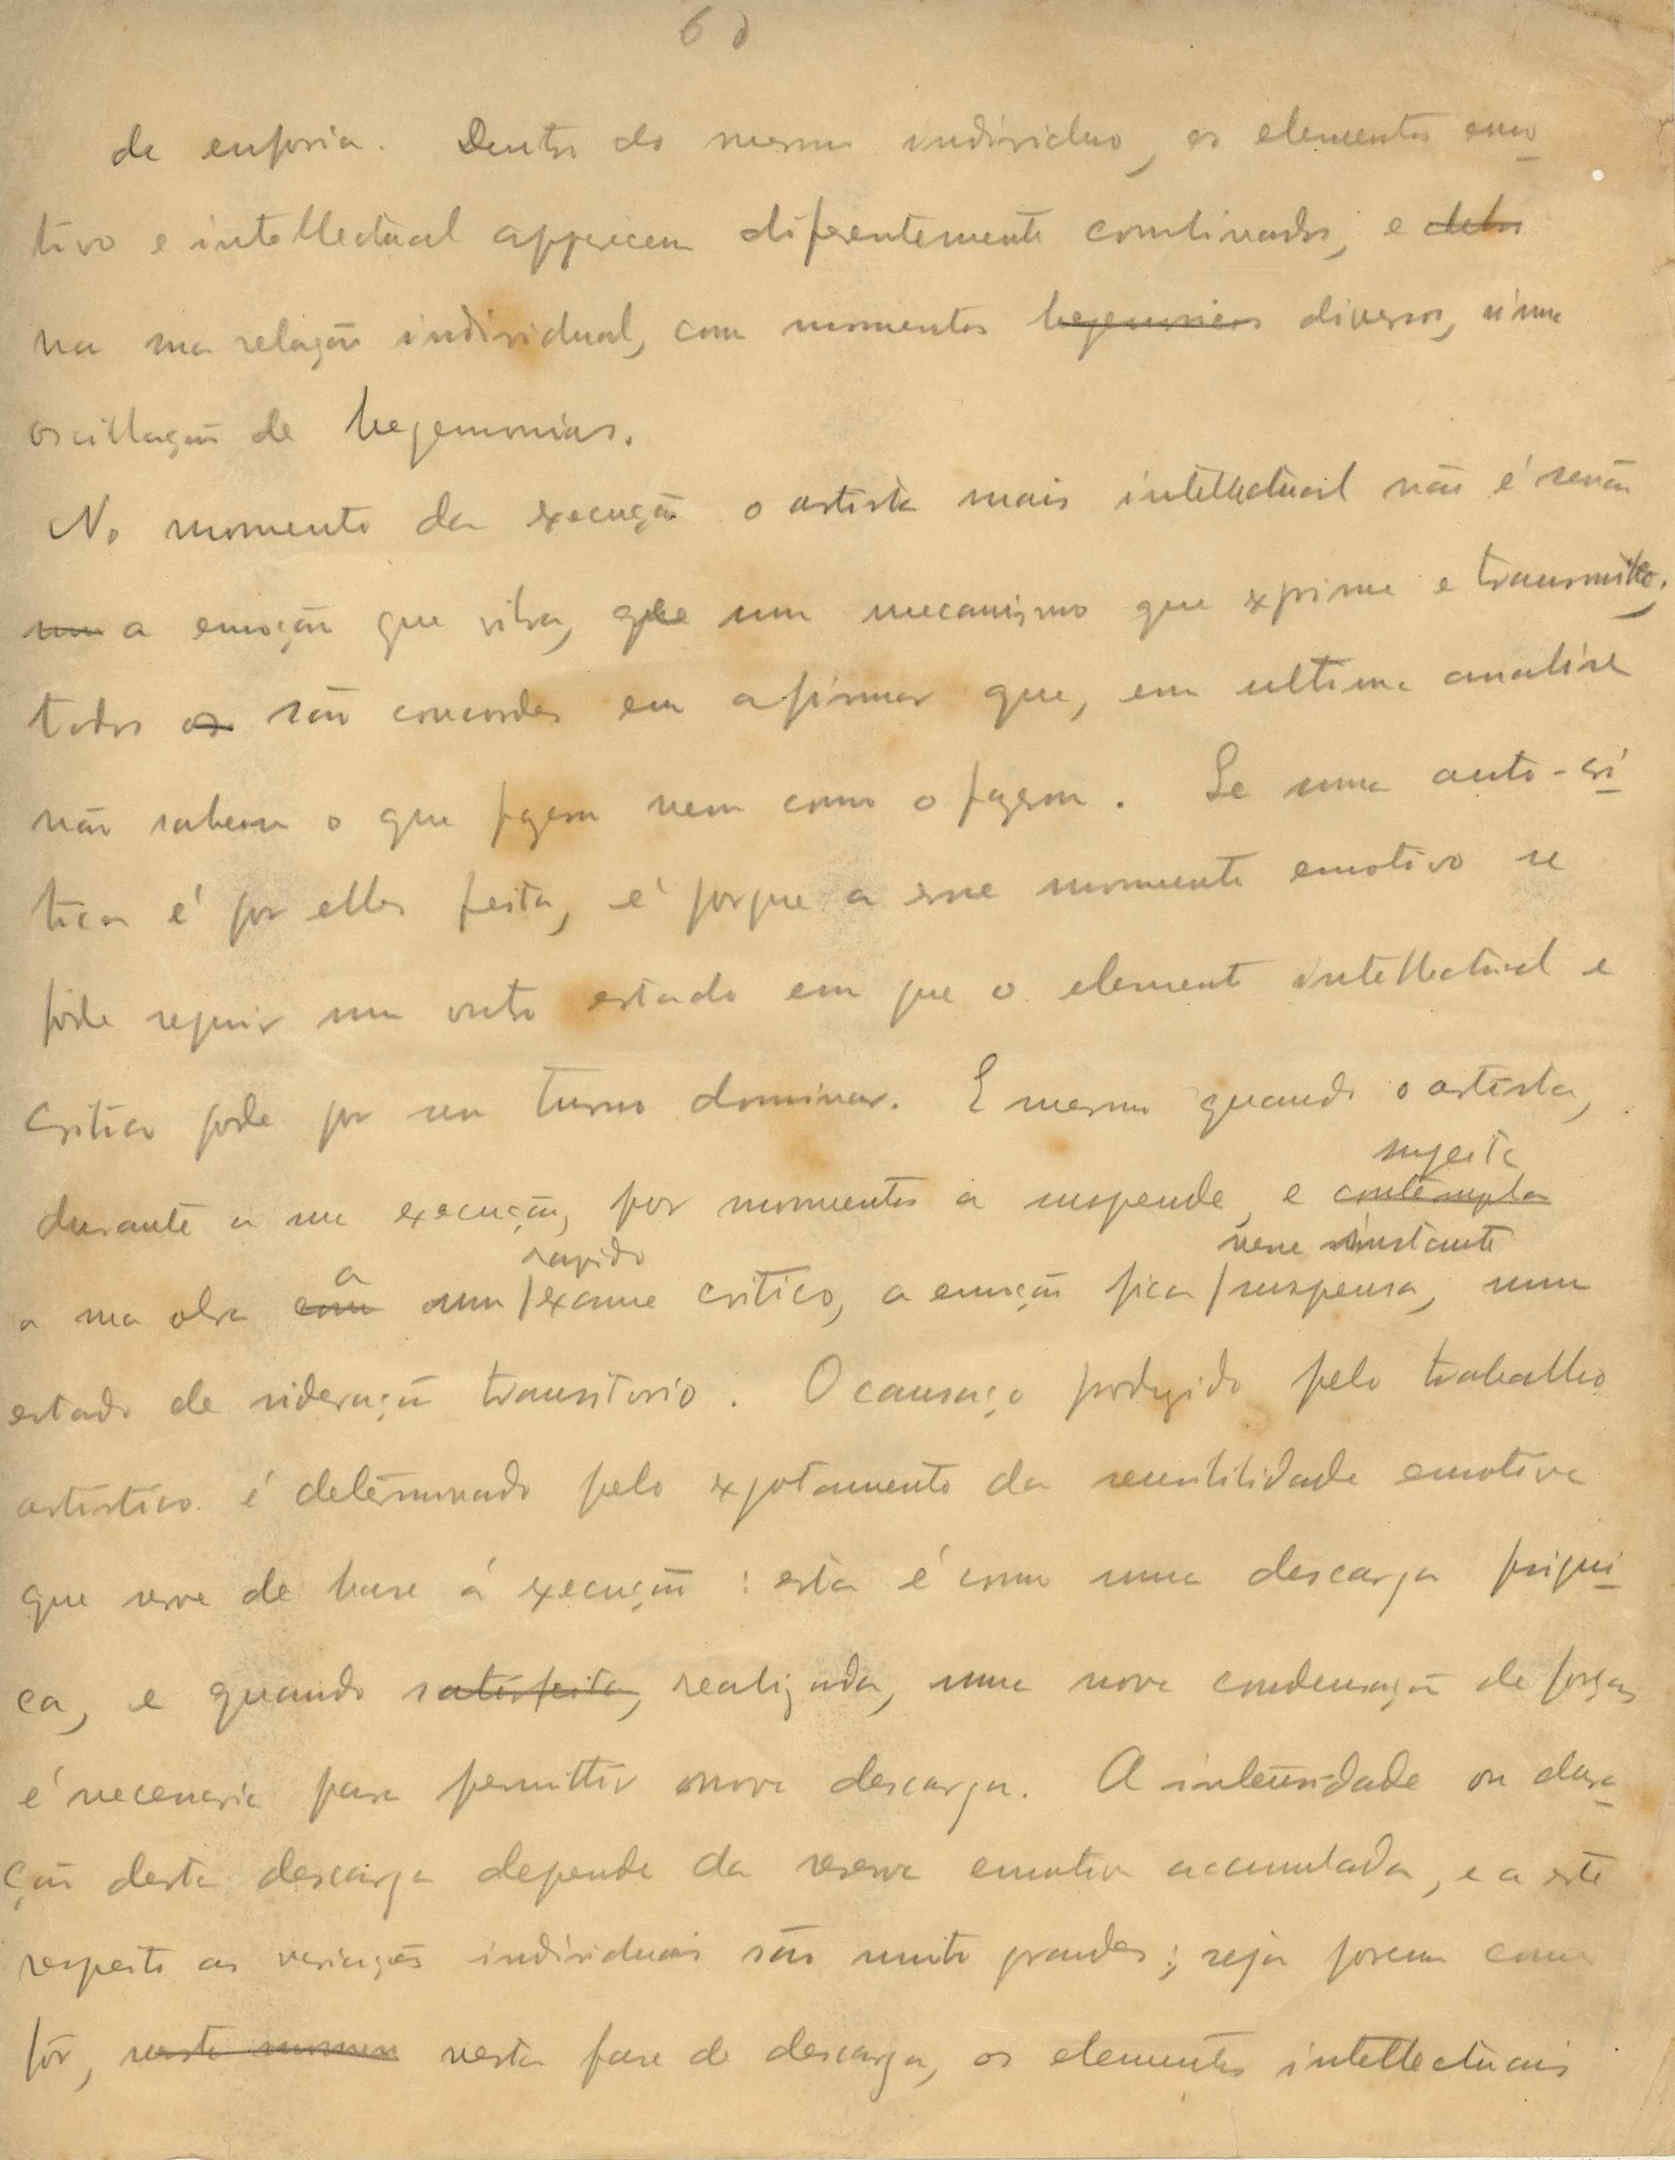 60
de euforia. Dentro do mesmo individuo, os elementos emo
tivo e intellectual apparecem diferentemente combinados, e
na sua relação individual, com momentos hegemonicos diversos, n'uma
oscillação de hegemonias.
No momento da execução o artista mais intellectual não é senão
uma a emoção que vibra, e um mecanismo que exprime e transmitte;
todos os são concordes em afirmar que, em ultima analise
não sabem o que fazem nem como o fazem. Se uma auto-cri
tica é por elles feita, é porque a esse momento emotivo se
póde seguir um outro estado em que o elemento intellectual e
critico pode por seu turno dominar. E mesmo quando o artista,
durante a sua execução, por momentos a suspende, e contempla
sujeita
a sua obra com a um rapido exame critico, a emoção fica nesse instante suspensa, num
estado de sideração transitorio. O cansaço produzido pelo trabalho
artistico é determinado pelo exgotamento da sensibilidade emotiva
que serve de base á execução: esta é como uma descarga psiqui
ca, e quando satisfeita, realizada, uma nova condensação de forças
é necessaria para permittir nova descarga. A intensidade ou dura
ção desta descarga depende da reserva emotiva accumulada, e a este
respeito as variações individuais são muito grandes; seja porem como
fôr, neste momen nesta fase de descarga, os elementos intellectuais